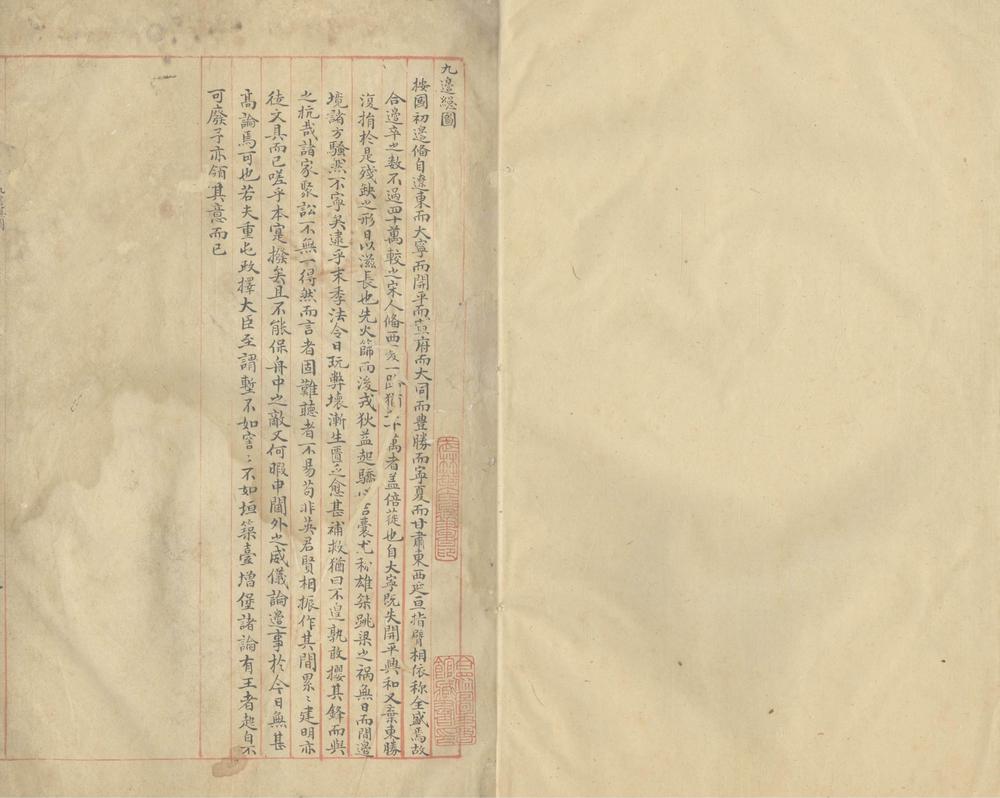 九邊總圖
按國初邊備自遼東而大寧而開平而宣府而大同而豐勝而寧夏而甘肅東西延亘指臂相依称全盛焉故
合邊卒之數不過四十萬較之宋人備西夏一路猶二十萬者盖倍蓰也自大寧既失開平興和又棄東勝
復捐於是殘缺之形日以滋長也先火篩而後戎狄益起驕心吉囊尤称雄桀跳梁之禍無日而間邊
境諸方騷然不寧矣逮乎末季法令日玩弊壞漸生匱乏愈甚補救猶曰不遑孰敢攖其鋒而與
之抗哉諸家聚訟不無一得然而言者固難聽者不易苟非英君賢相振作其間累〻建明亦
徒文具而已嗟乎本寔撥矣且不能保舟中之敵又何暇申閫外之威儀論邊事於今日無甚
髙論焉可也若夫重屯政擇大臣至謂塹不如窖〻不如垣築臺增堡諸論有王者起自不
可廢予亦領其意而已